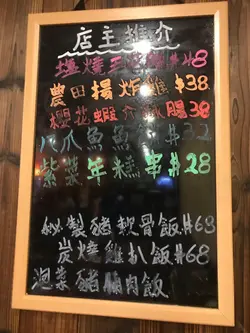 店主推介
塩燒 $48
農田揚炸雞 $38
櫻花蝦介 腸 38
八爪魚 $32
紫菜年糕串 $28
秘製豬軟骨飯 $68
炭燒雞扒飯 $68
泡菜豬腩肉飯